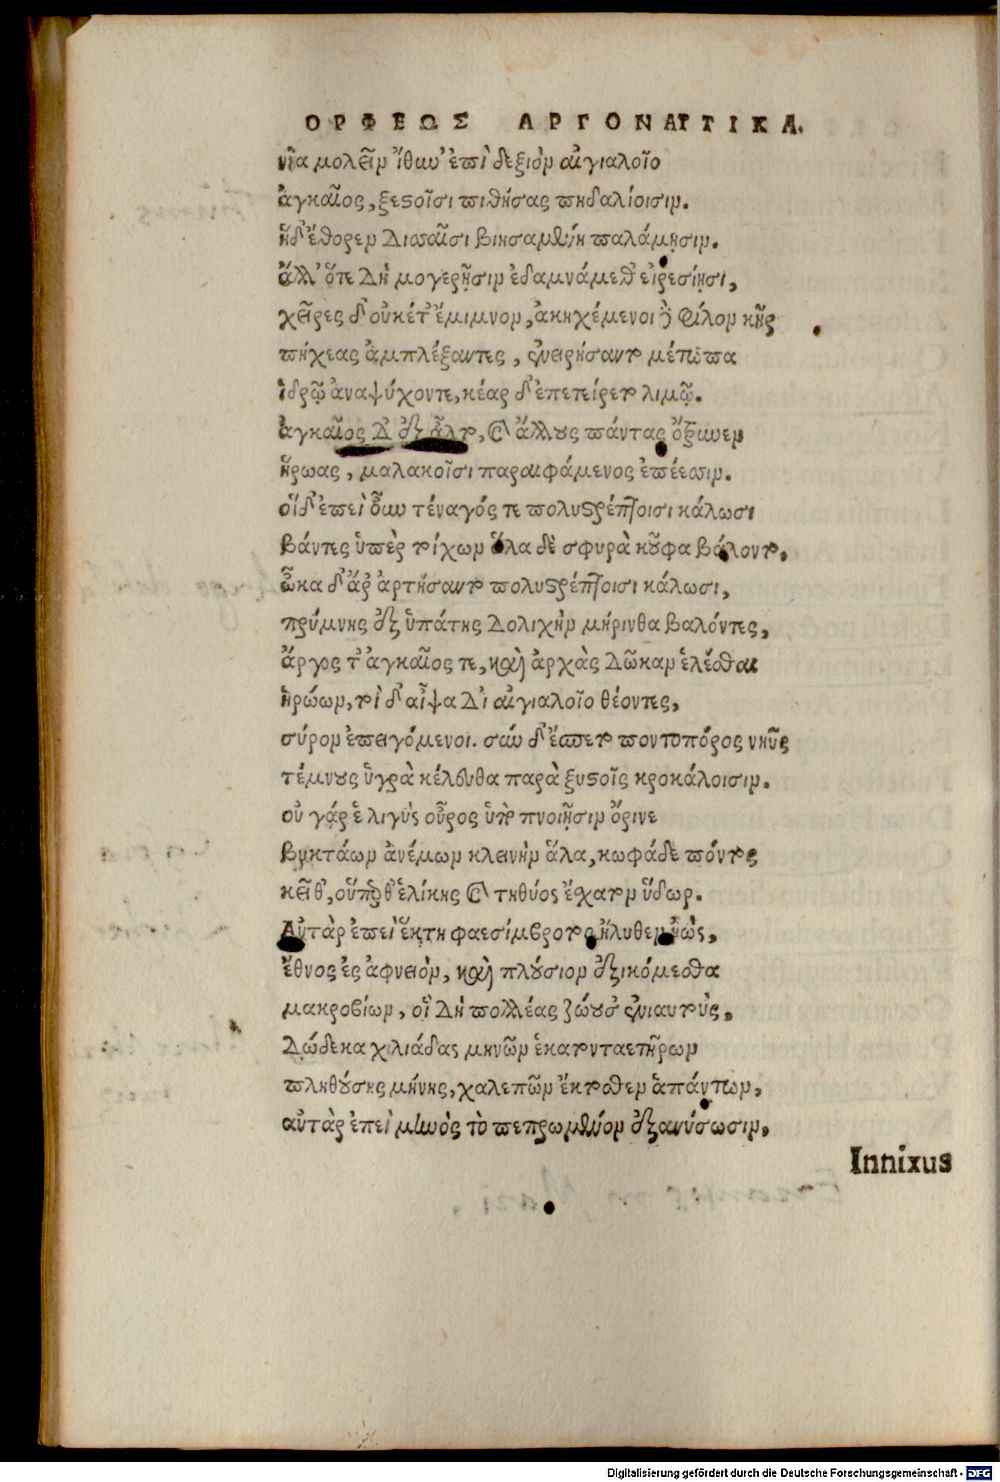 ΟΡΦΕΩΣ ΑΡΓΟΝΑΥΤΙΚΑ.
νῆα μολεῖν ἴθυν' ἐπὶ δεξιὸν αἰγιαλοῖο
ἀγκαῖος, ξεστοῖσι πιθήσας πηδαλίοισιν.
ἡ δ' ἔθορεν διωαῖσι βιησαμένη παλάμῃσιν.
ἀλλ' ὅτε δὴ μογερῇσιν ἐδαμνάμεθ' εἰρεσίῃσι,
χεῖρες δ' οὐκέτ' ἔμιμνον, ἀκηχέμενοι δὲ φίλον κῆρ
πήχεας ἀμπλέξαντες, ἐνειρήσαντο μέτωπα
ἱδρῷ ἀναψύχοντε, κέαρ δ' ἐπετείρετο λιμῷ.
ἀγκαῖος δ' ἐξᾶλτο, καὶ ἄλλους πάντας ὄξωεν
ἥρωας, μαλακοῖσι παραιφάμενος ἐπέεσσιν.
οἱ δ' ἐπεὶ οὖν τέναγός τε πολυστρέπτοισι κάλωσι
βάντες ὑπὲρ τοίχων ἅλα δὲ σφυρὰ κοῦφα βάλοντο,
ὦκα δ' ἄρ' ἀρτήσαντο πολυστρέπτοισι κάλωσι,
πρύμνης ἐξ ὑπάτης δολιχὴν μήρινθα βαλόντες,
ἄργος τ' ἀγκαῖός τε, καὶ ἀρχὰς δῶκαν ἑλέσθαι
ἡρώων, τοὶ δ' αἶψα δι' αἰγιαλοῖο θέοντες,
σύρον ἐπειγόμενοι. σὺν δ' ἕσπετο ποντοπόρος νηῦς
τέμνους ὑγρὰ κέλευθα παρὰ ξυστοῖς κροκάλοισιν.
οὐ γάρ ἑ λιγὺς οὖρος ὑπὸ πνοιῇσιν ὄρινε
βυκτάων ἀνέμων κλεινὴν ἅλα, κωφὰ δὲ πόντος
κεῖθ', οὗπερ θ' ἑλίκης καὶ τηθύος ἔσχατον ὕδωρ.
Αὐτὰρ ἐπεὶ ἕκτη φαεσίμβροτος ἤλυθεν ἠώς,
ἔθνος ἐς ἀφνειὸν, καὶ πλούσιον ἐξικόμεσθα
μακροβίων, οἳ δὴ πολλέας ζώουσ' ἐνιαυτοὺς,
Δώδεκα χιλιάδας μηνῶν ἑκατονταετήρων
πληθούσης μήνης, χαλεπῶν ἔκτοσθεν ἁπάντων,
αὐτὰρ ἐπεὶ μηνὸς τὸ πεπρωμένον ἐξανύσωσιν,
Innixus
Digitalisierung gefördert durch die Deutsche Forschungsgemeinschaft - DFG